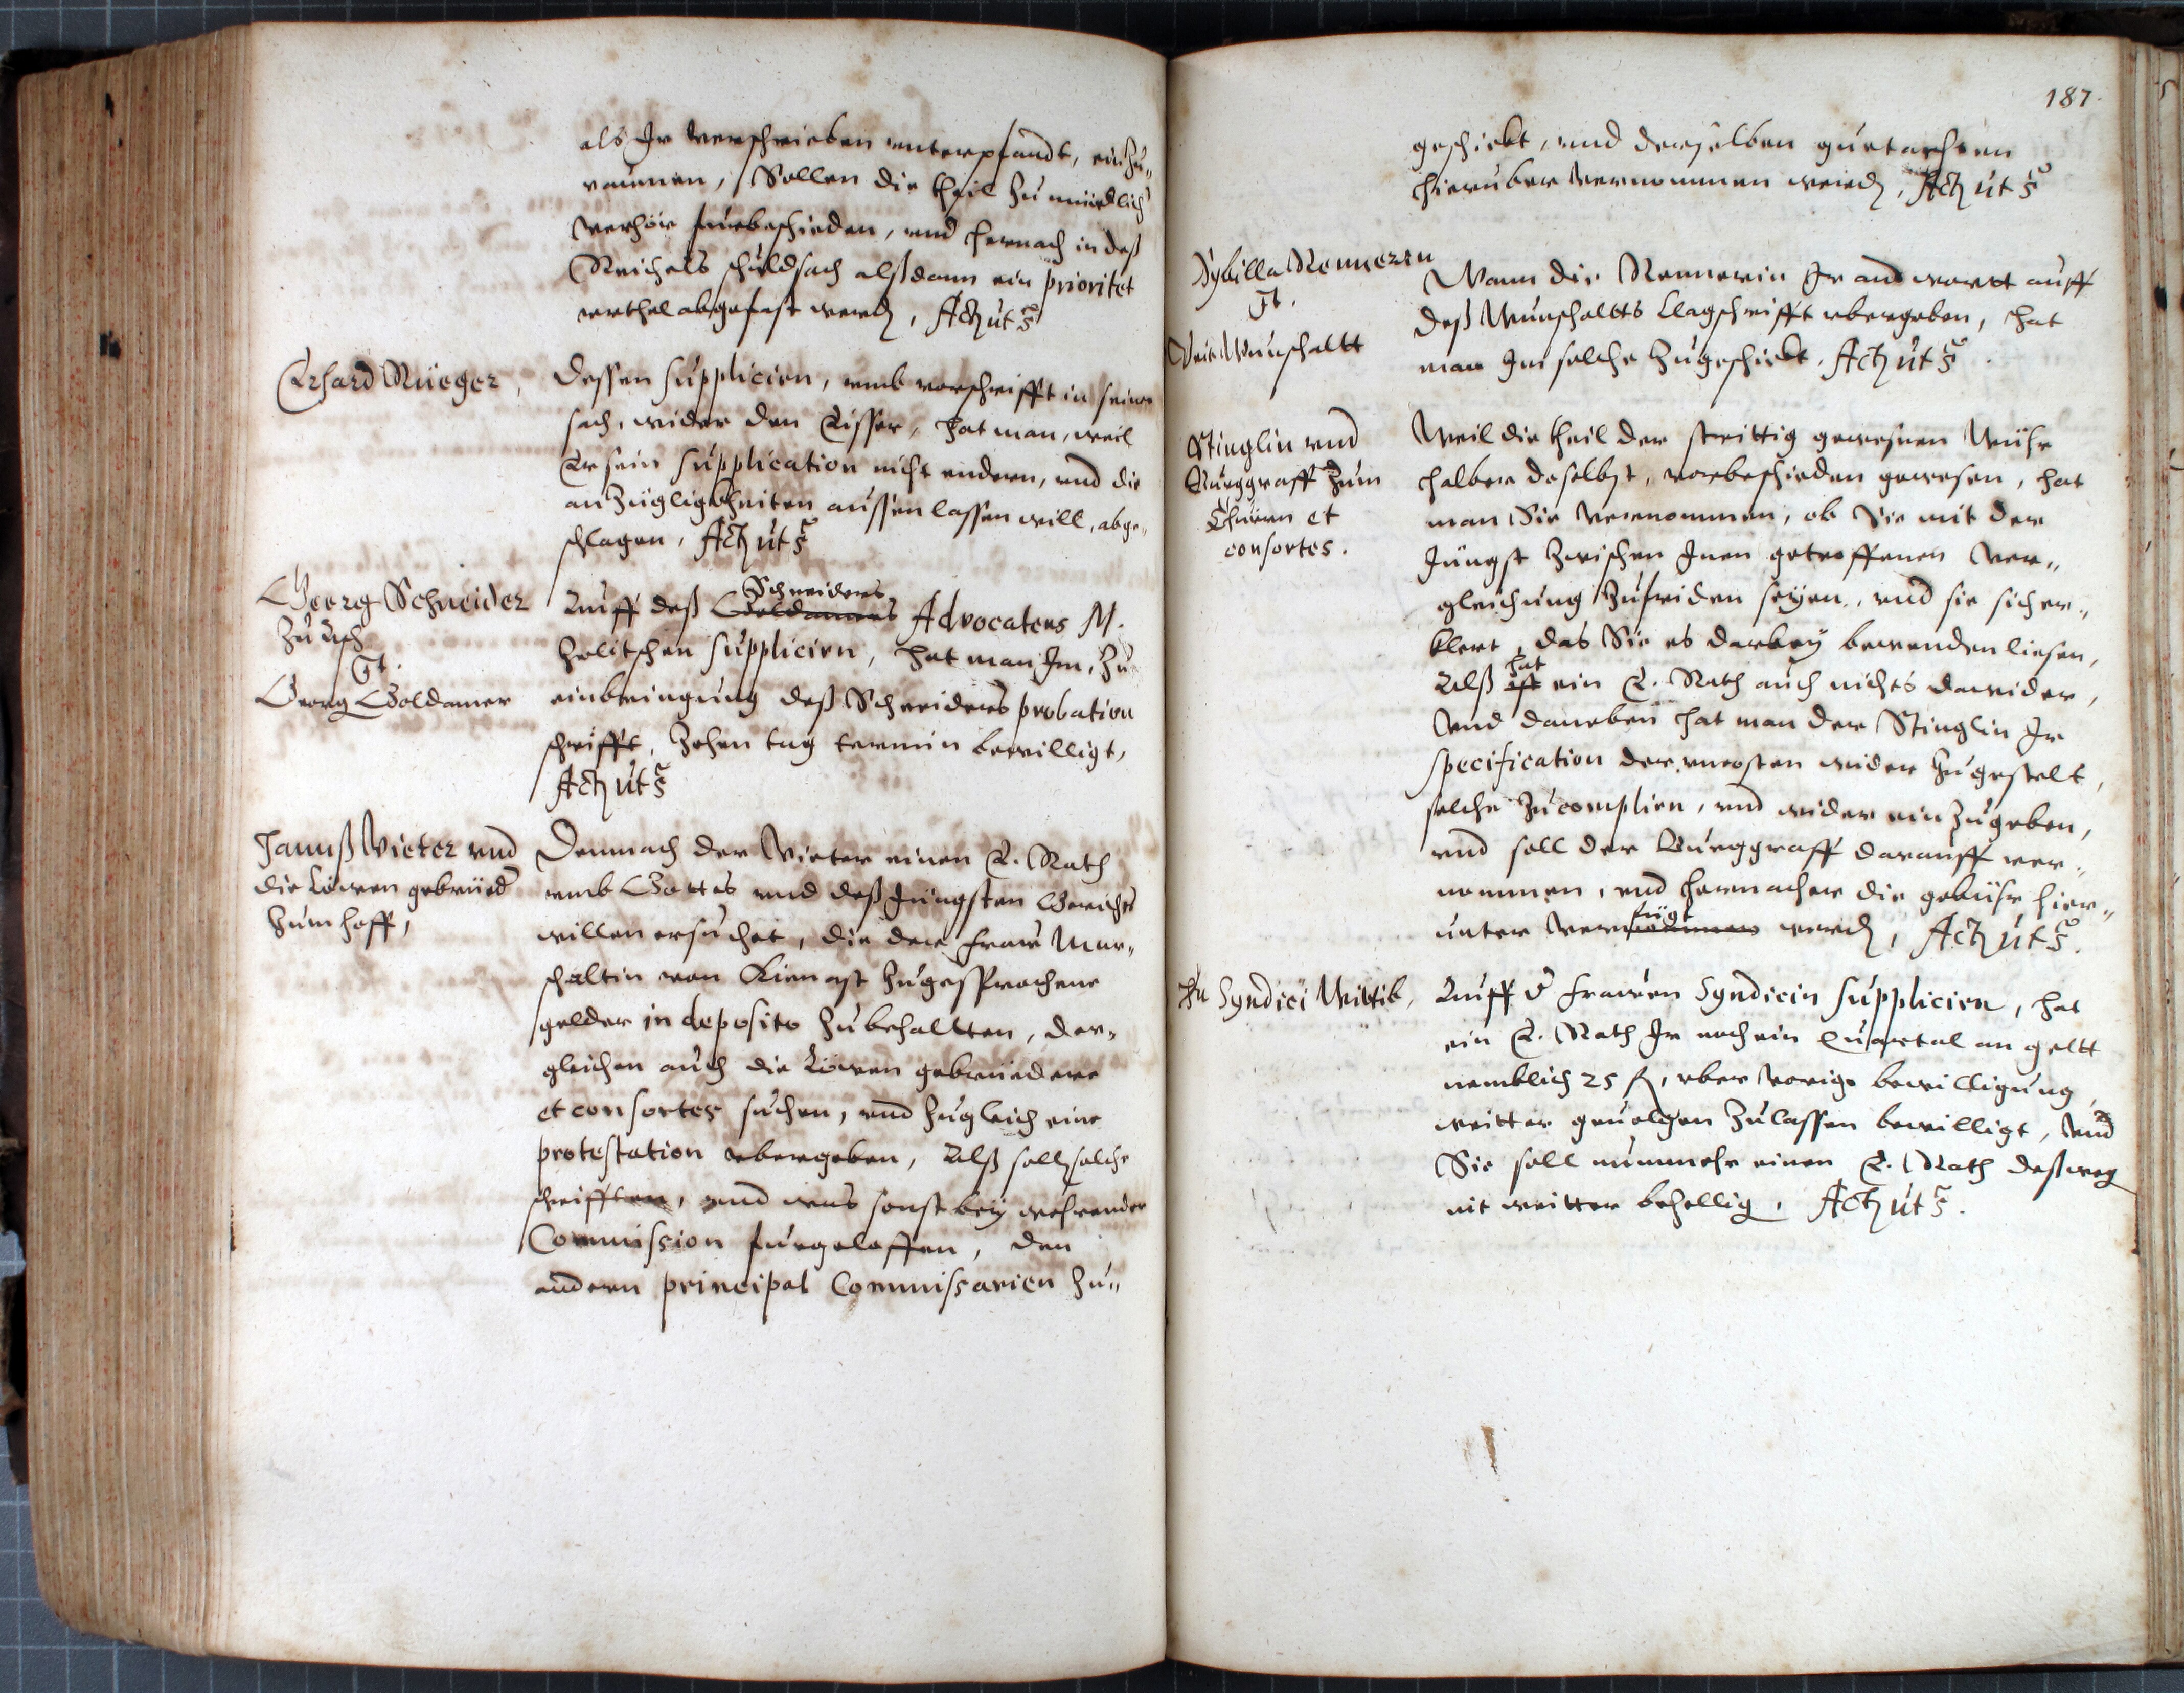 als Ir verschrieben unterpfandt, einzu„
raumen, Sollen die theil zu mündlich
verhör furbeschieden, und hernach in deß
Reichels schuldsach alßdann ein prioritet
urthel abgefast werden, Act: ut s:
Erhard Rüeger,
dessen supplicirn, umb vorschrifft in seiner
sach, wider den , hat man, weil
Er sein supplication nicht endern, und die
anzügligkheiten aussen lassen will, abge„
schlagen, Act: ut s:
Georg Schneider
zu Asch
Ct.
Georg Goldamer
Auff deß Goldamers Schneiders Advocatens M.
supplicirn, hat man Im, zu
einbringung deß Schneiders probation
schrifft, Zehen tag termin bewilligt,
Act: ut s:
Hannß Vieter und
die Löwen gebrüed:
zum hoff,
Demnach der Vieter einen E. Rath
umb Gottes und deß Jüngsten Gerichts
willen ersuchet, die der Fraw Mar„
schaltin von zugesprochene
gelder in deposito zubehaltten, der„
gleichen auch die Löwen gebruedere
et consortes suchen, und zugleich eine
protestation ubergeben, Alß soll solche
schrifften, und was sonst bey wehrender
Commission furgeloffen, den
andern principal Commissarien zu„
187.
geschickt, und derselben guetachten
hieruber vernommen werden, Act: ut s:
Sybilla Rennerin
Ct.
Veit Wunschaltt
Wann die Rennerin Ir andtwortt auff
deß Wunschaltts Clagschrifft ubergeben, hat
man Im solche zugeschickt. Act: ut s:
Stinglin und
Burggraff zum
Thurn et
consortes.
Weil die theil der strittig gewesenen Wühr
halber daselbst, vorbeschieden gewesen, hat
man Sie vernommen, ob Sie mit der
Jüngst zwischen Inen getroffenen ver„
gleichung zufriden seyen, und sie sich er„
klert, das Sie es darbey bewenden liesen,
Alß ist hat ein E. Rath auch nichts darwider,
Und daneben hat man der Stinglin Ir
specification der uncosten wider zugestelt,
solche zu complirn, und wider einzugeben,
und soll der Burggraff darauff ver„
nommen, und hernacher die gebühr hier„
unter verordnen fügt werden, Act: ut s:
Syndici Wittib,
Auff d: Frawen Syndicin supplicirn, hat
ein E. Rath Ir noch ein Quartal an geltt
nemblich 25 fl, uber vorige bewilligung,
weitter gevolgen zulassen bewilligt, Und
Sie soll nunmehr einen E. Rath deßweg
nit weitter behellig, Act: ut s: